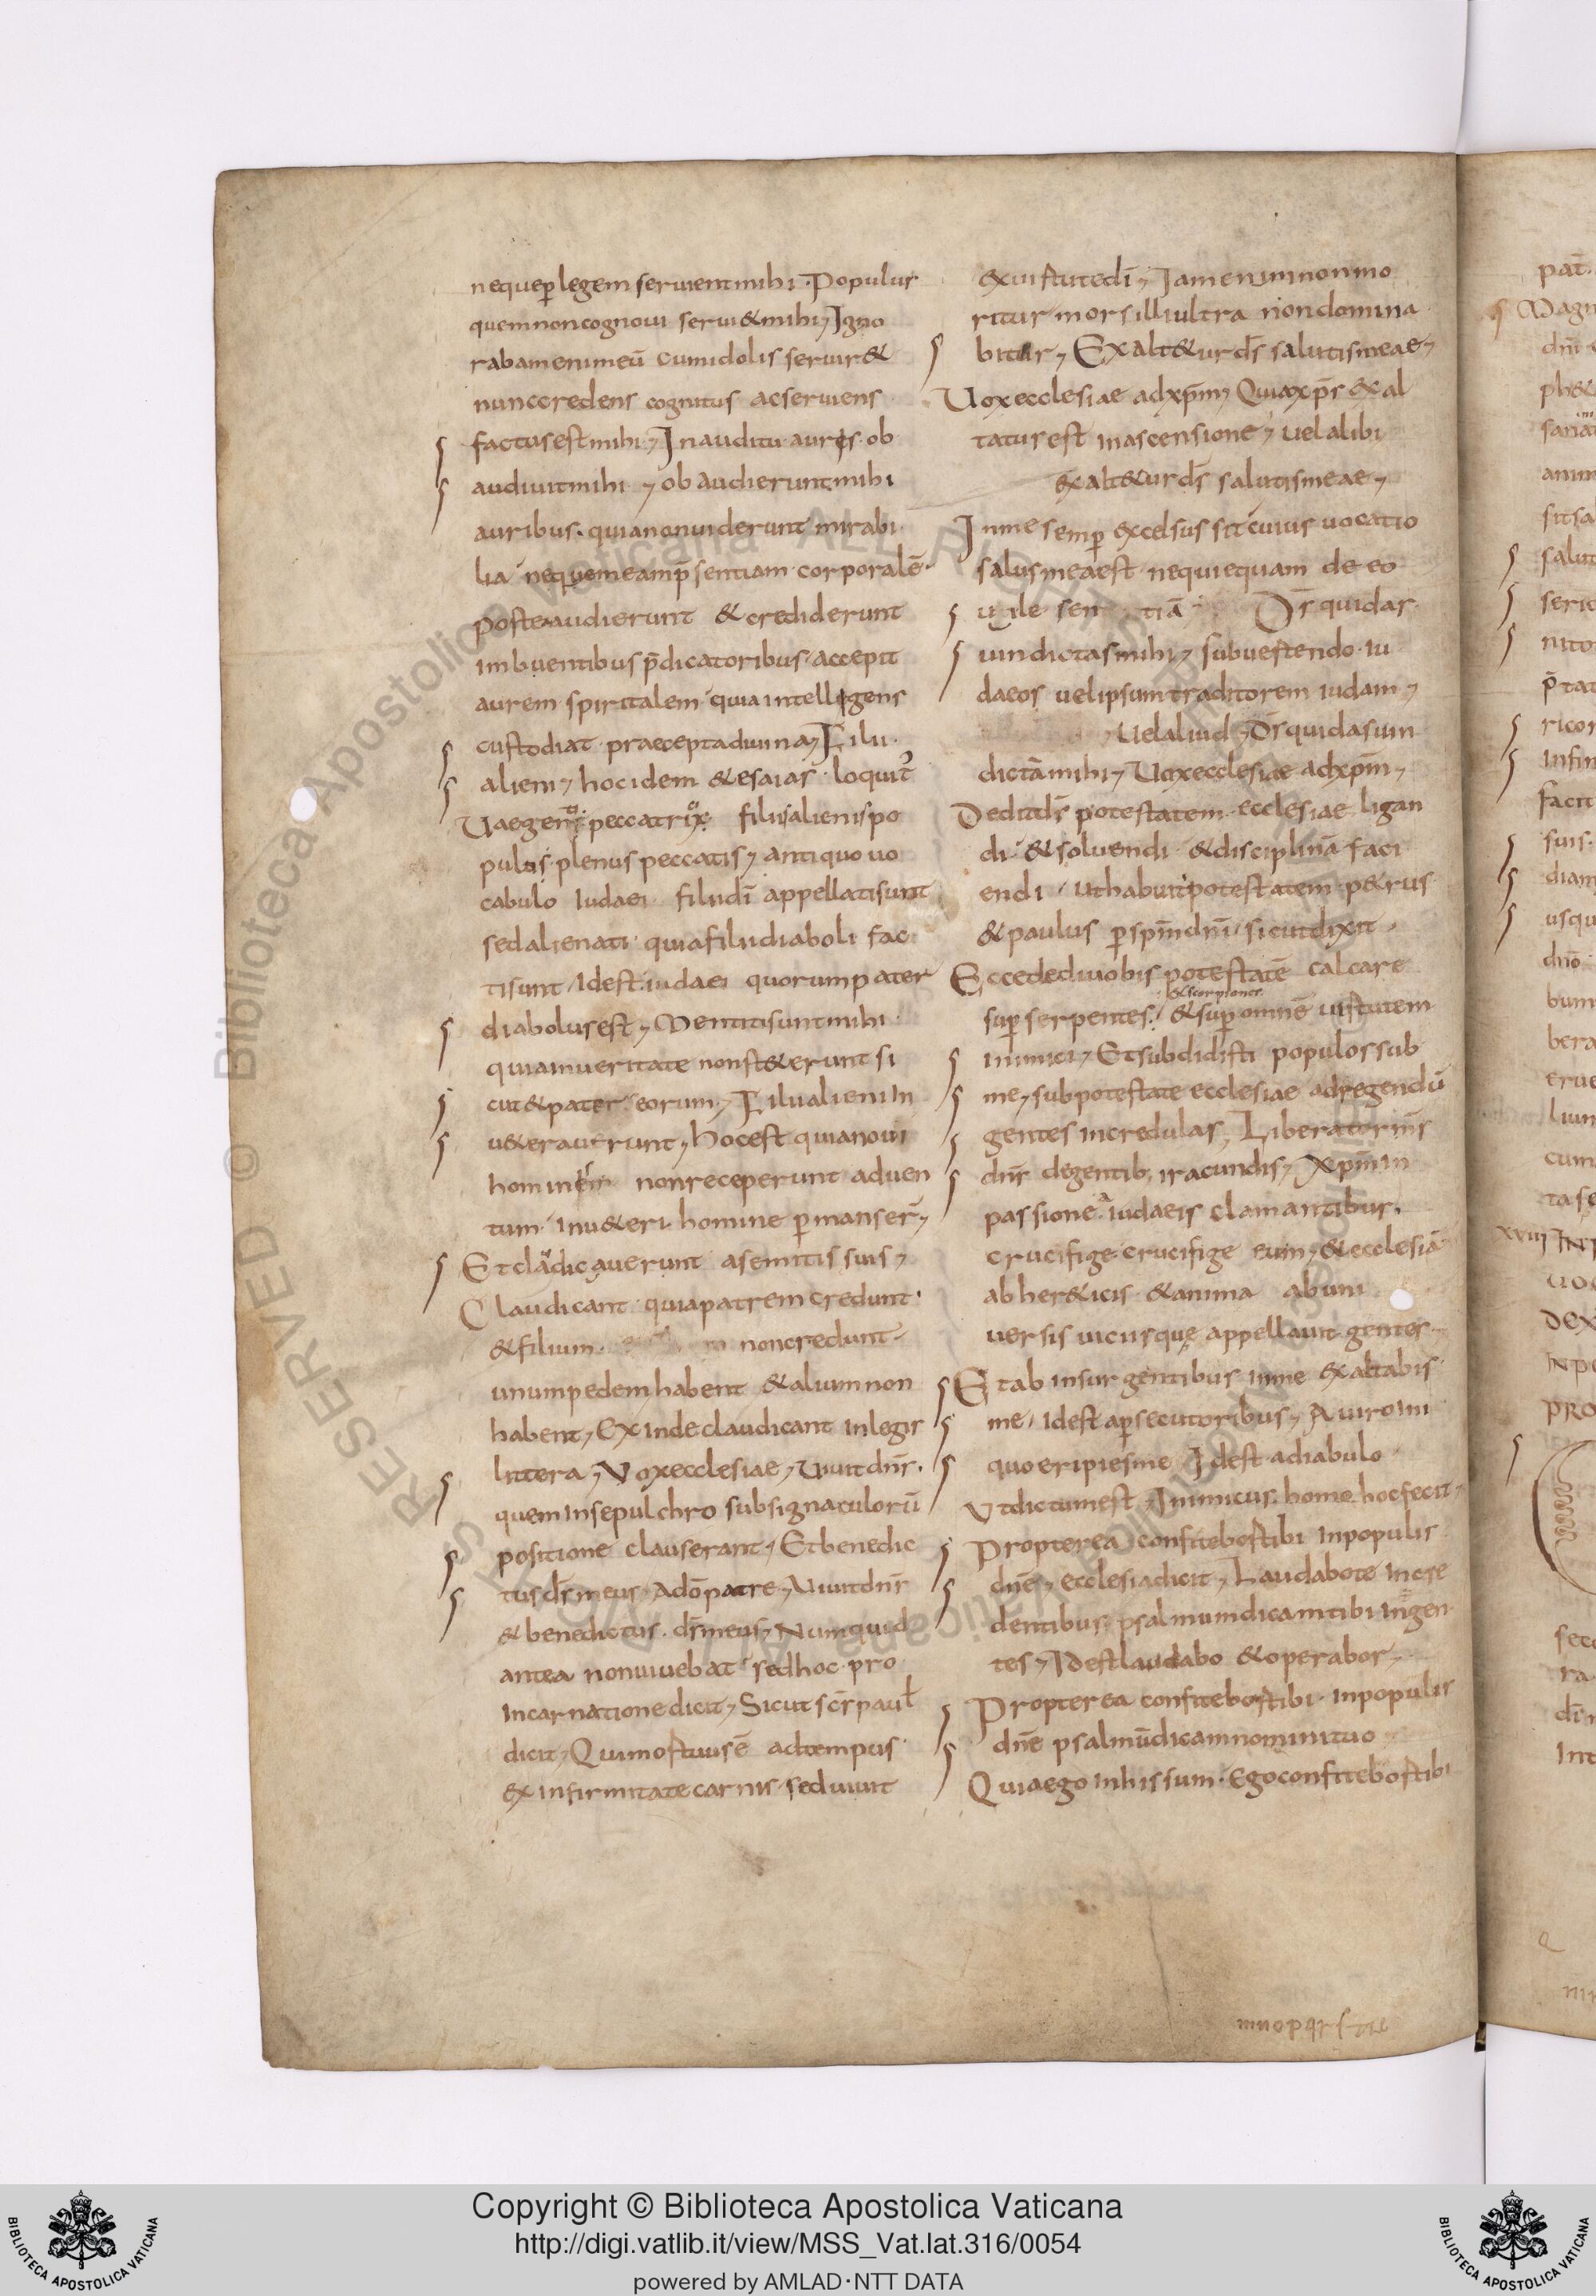 neque p̄ legem seruient mihi · Populus
quem non cognoui seruiet mihi · Igno
rabam enim eū cum idolis seruiret
nunc credens cognitus ac seruiens
factus est mihi · In auditu auris · ob
audiuit mihi · ob audierunt mihi
auribus · quia non uiderunt mirabi
lia neque meam p̄sentiam corporalē ·
postea audierunt & crediderunt
imbuentibus p̄dicatoribus · accepit
aurem spiritalem quia intelligens
custodiat praecepta diuina · Filii
alieni · hoc idem & esaias loquit̄
Uae peccatrix filiis alienis po
pulus plenus peccatis · antiquo uo
cabulo Iudaei filii dī appellati sunt
sed alienati quia filii diaboli fac
ti sunt / Id est iudaei quorum pater
diabolus est · Mentiti sunt mihi ·
quia in ueritate non steterunt si
cut & pater eorum · Filii alieni in
ueterauerunt · hoc est quia noui
non receperunt aduen
tum · in ueteri homine p̄manser̄ ·
Et claudicauerunt a semitis suis ·
Claudicant quia patrem credunt ·
& filium non credunt
unum pedem habent & alium non
habent · Ex inde claudicant in legis
littera · Uox ecclesiae · Uiuit dn̄s ·
quem in sepulchro sub signaculorū
positione clauserant · Et benedic
tus d̄s meus · A dō patre · Uiuit dn̄s
& benedictus · d̄s meus · Numquid
antea non uiuebat · sed hoc · pro
incarnatione dicit · Sicut scr̄ paul̄
dicit · Qui mortuus ē ad tempus
ex infirmitate carnis · sed uiuit
ex uirtute dī · Iam enim non mo
ritur mors illi ultra non domina
bitur · Exaltetur d̄s salutis meae ·
Uox ecclesiae ad xp̄m · Quia xp̄s exal
tatur est in ascensione · uel alibi
exaltetur d̄s salutis meae ·
In me semp̄ excelsus sit cuius uocatio
salus mea est nequiequam de eo
D̄s qui das
uindictas mihi · subuertendo · iu
daeos uel ipsum traditorem iudam ·
Uel aliud · D̄s qui das uin
dictā mihi · Uox ecclesiae ad xp̄m ·
Dedit d̄s potestatem ecclesiae ligan
di · & soluendi & disciplinā faci
endi / ut habuit potestatem petrus
& paulus p̄ sp̄m dn̄i / sicut dixit ·
Ecce dedi uobis potestatē calcare
& scorpiones
sup̄ serpentes / & sup̄ omnē uirtutem
inimici · Et subdidisti populos sub
me · sub potestate ecclesiae ad regendū
gentes incredulas · Liberator m̄s
dn̄s de gentib; iracundis · Xp̄m in
passione a iudaeis clamantibus ·
crucifige crucifige eum · & ecclesiā
ab hereticis & anima ab uni
uersis appellauit gentes
Et ab insurgentibus in me exaltabis
me / id est a p̄secutoribus · A uiro ini
quo eripies me Id est a diabulo
Ut dictum est · Inimicus homo hoc fecit ·
Propterea confitebor tibi in populis
dn̄e · ecclesia dicit · Laudabo te in cre
dentibus psalmum dicam tibi in gen
tes · Id est laudabo & operabor ·
Propterea confitebor tibi · in populis
dn̄e psalmū dicam nomini tuo
Quia ego in his sum · Ego confitebor tibi
mnopqrſtu
Copyright © Biblioteca Apostolica Vaticana
http://digi.vatlib.it/view/MSS_Vat.lat.316/0054
powered by AMLAD·NTT DATA